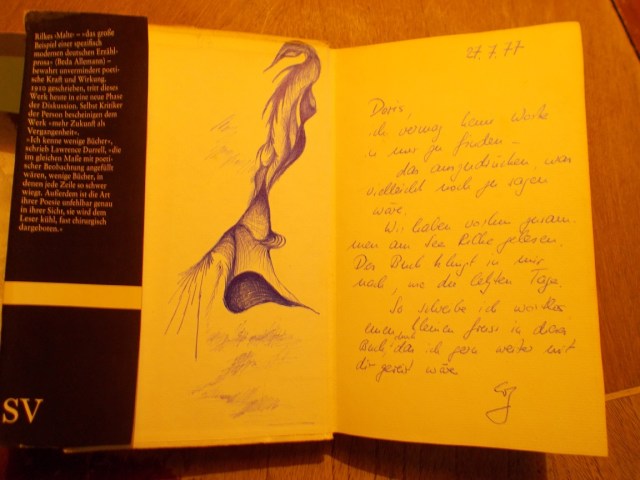 Rilkes ›Malte‹ – »das große
Beispiel einer spezifisch
modernen deutschen Erzähl-
prosa« (Beda Allemann) –
bewahrt unvermindert poeti-
sche Kraft und Wirkung.
1910 geschrieben, tritt dieses
Werk heute in eine neue Phase
der Diskussion. Selbst Kritiker
der Person bescheinigen dem
Werk »mehr Zukunft als
Vergangenheit«.
»Ich kenne wenige Bücher«,
schrieb Lawrence Durrell, »die
im gleichen Maße mit poeti-
scher Beobachtung angefüllt
wären, wenige Bücher, in
denen jede Zeile so schwer
wiegt. Außerdem ist die Art
ihrer Poesie unfehlbar genau
in ihrer Sicht, sie wird dem
Leser kühl, fast chirurgisch
dargeboten.«
SV
27.7.77
Doris,
ich vermag keine Worte
in mir zu finden –
das auszudrücken, was
vielleicht noch zu sagen
wäre.
Wir haben vorhin zusam-
men am See Rilke gelesen.
Das Buch klingt in mir
nach, wie die letzten Tage.
So schreibe ich wortlos
einen kleinen Gruss in dieses
Buch, das ich gern weiter mit
dir gelesen wäre